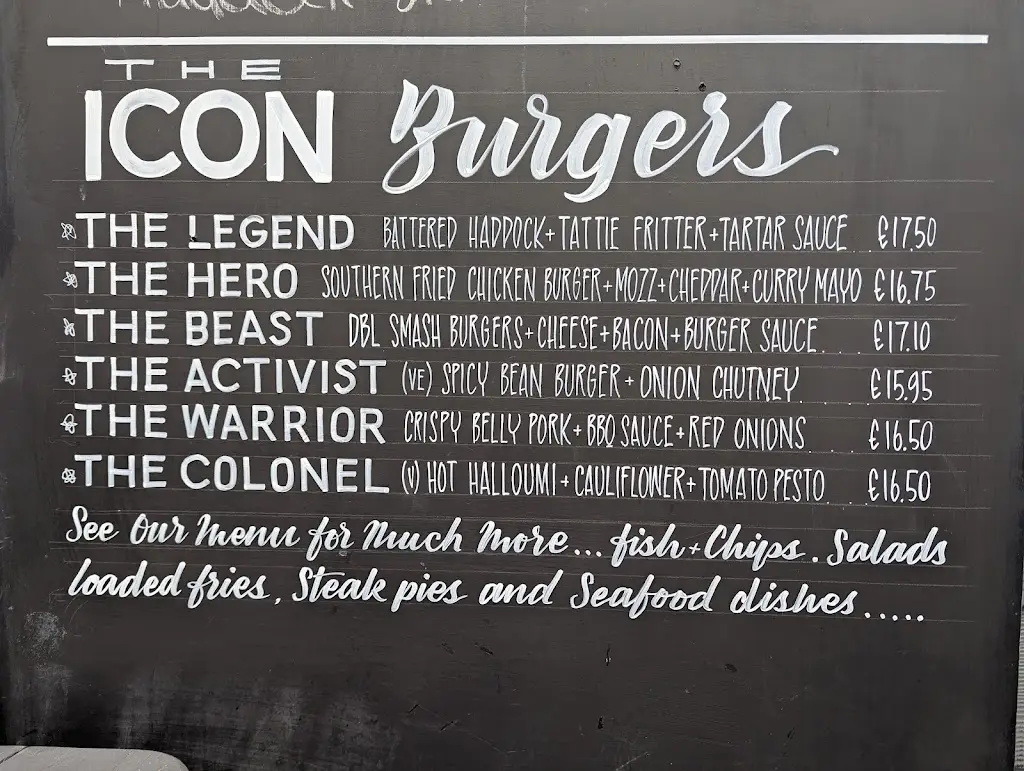 THE
ICON Burgers
THE LEGEND BATTERED HADDOCK+TATTIE FRITTER+TARTAR SAUCE .. £17.50
THE HERO SOUTHERN FRIED CHICKEN BURGER+MOZZ+CHEDDAR+CURRY MAYO £16.75
THE BEAST DBL SMASH BURGERS+CHEESE+BACON+BURGER SAUCE.... £17.10
THE ACTIVIST (VE) SPICY BEAN BURGER + ONION CHUTNEY..... £15.95
THE WARRIOR CRISPY BELLY PORK+BBQ SAUCE+RED ONIONS .... £16.50
THE COLONEL (V) HOT HALLOUMI+CAULIFLOWER+TOMATO PESTO ... £16.50
See Our Menu for Much More... fish+Chips. Salads
loaded fries, Steak pies and Seafood dishes.....